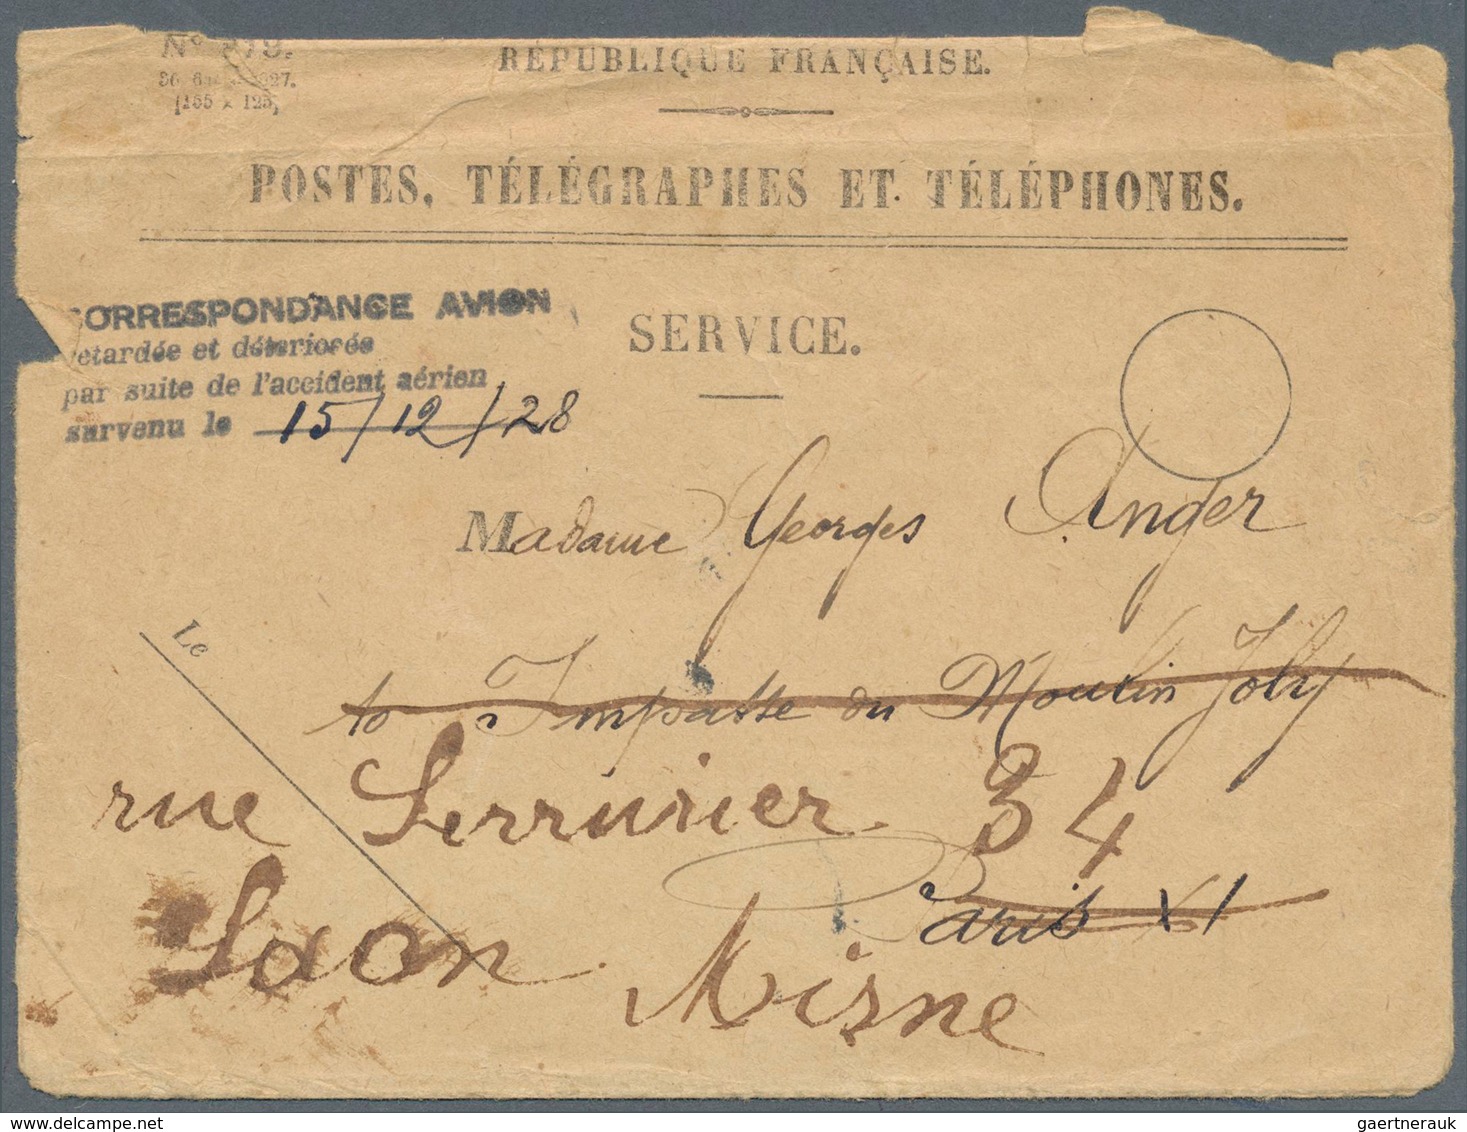 RÉPUBLIQUE FRANÇAISE.
[155 x 125]
POSTES, TÉLÉGRAPHES ET TÉLÉPHONES.
CORRESPONDANCE AVION
retardée et détériorée
par suite de l'accident aérien
survenu le 15/12/28
SERVICE.
Madame Georges Anger
Le
10 Impasse du Moulin Joly
rue Serrurier 34
Paris XI
Laon Aisne
gaertnerauk